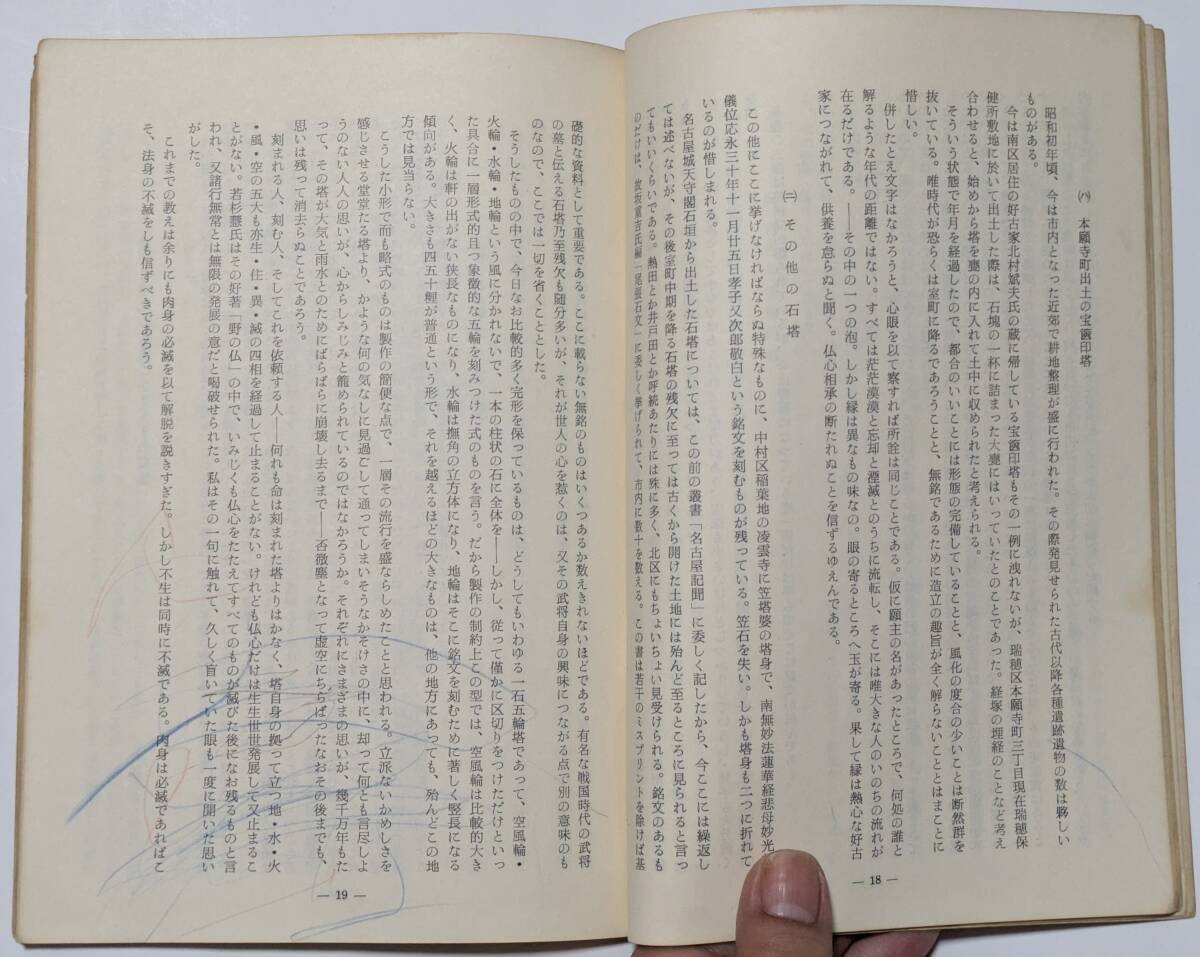 ㈥　本願寺町出土の宝篋印塔
昭和初年頃、今は市内となった近郊で耕地整理が盛に行われた。その際発見せられた古代以降各種遺跡遺物の数は夥しい
ものがある。
今は南区居住の好古家北村斌夫氏の蔵に帰している宝篋印塔もその一例に洩れないが、瑞穂区本願寺町三丁目現在瑞穂保
健所敷地に於いて出土した際は、石塊の一杯に詰まった大甕にはいっていたとのことであった。経塚の埋経のことなど考え
合わせると、始めから塔を甕の内に入れて土中に収められたと考えられる。
そういう状態で年月を経過したので、都合のいいことには形態の完備していることと、風化の度合の少いことは断然群を
抜いている。唯時代が恐らくは室町に降るであろうことと、無銘であるために造立の趣旨が全く解らないことはまことに
惜しい。
併したとえ文字はなかろうと、心眼を以て察すれば所詮は同じことである。仮に願主の名があったところで、何処の誰と
解るような年代の距離ではない。すべては茫茫漠漠と忘却と湮滅とのうちに流転し、そこには唯大きな人のいのちの流れが
在るだけである。――その中の一つの泡。しかし縁は異なもの味なもの。眼の寄るところへ玉が寄る。果して縁は熱心な好古
家につながれて、供養を怠らぬと聞く。仏心相承の断たれぬことを信ずるゆえんである。
㈡　その他の石塔
この他にここに挙げなければならぬ特殊なものに、中村区稲葉地の凌雲寺に笠塔婆の塔身で、南無妙法蓮華経悲母妙光
儀位応永三十年十一月廿五日孝子又次郎敬白という銘文を刻むものが残っている。笠石を失い。しかも塔身も二つに折れて
いるのが惜しまれる。
名古屋城天守閣石垣から出土した石塔については、この前の叢書「名古屋記聞」に委しく記したから、今ここには繰返し
ては述べないが、その後室町中期を降る石塔の残欠に至っては古くから開けた土地には殆んど至るところに見られると言っ
てもいいくらいである。熱田とか井戸田とか呼続あたりには殊に多く、北区にもちょいちょい見受けられる。銘文のあるも
のだけは、故坂重吉氏編「尾張石文」に委しく挙げられて、市内に数十を数える。この書は若干のミスプリントを除けば基
― 18 ―
礎的な資料として重要である。ここに載らない無銘のものはいくつあるか数えきれないほどである。有名な戦国時代の武将
の墓と伝える石塔乃至残欠も随分多いが、それが世人の心を惹くのは、又その武将自身の興味につながる点で別の意味のも
のなので、ここでは一切を省くこととした。
そうしたものの中で、今日なお比較的多く完形を保っているものは、どうしてもいわゆる一石五輪塔であって、空風輪・
火輪・水輪・地輪という風に分かれないで、一本の柱状の石に全体を――しかし、従って僅かに区切りをつけただけといっ
た具合に一層形式的且つ象徴的な五輪を刻みつけた式のものを言う。だから製作の制約上この型では、空風輪は比較的大き
く、火輪は軒の出がない狭長なものになり、水輪は撫角の立方体になり、地輪はそこに銘文を刻むために著しく竪長になる
傾向がある。大きさも四五十糎が普通という形で、それを越えるほどの大きなものは、他の地方にあっても、殆んどこの地
方では見当らない。
こうした小形で而も略式のものは製作の簡便な点で、一層その流行を盛ならしめたことと思われる。立派ないかめしさを
感じさせる堂堂たる塔より、かような何の気なしに見過ごして通ってしまいそうなかそけさの中に、却って何とも言尽しよ
うのない人人の思いが、心からしみじみと籠められているのではなかろうか。それぞれにさまざまの思いが、幾千万年もた
って、その塔が大気と雨水とのためにばらばらに崩壊し去るまで――否微塵となって虚空にちらばったなおその後までも、
思いは残って消去らぬことであろう。
刻まれる人、刻む人、そしてこれを依頼する人――何れも命は刻まれた塔よりはかなく、塔自身の拠って立つ地・水・火
・風・空の五大も亦生・住・異・滅の四相を経過して止まることがない。けれども仏心だけは生生世世発展して又止まるこ
とがない。若杉慧氏はその好著「野の仏」の中で、いみじくも仏心をたたえてすべてのものが滅びた後になお残るものと言
われ、又諸行無常とは無限の発展の意だと喝破せられた。私はその一句に触れて、久しく盲いていた眼も一度に開いた思い
がした。
これまでの教えは余りにも肉身の必滅を以て解脱を説きすぎた。しかし不生は同時に不滅である。肉身は必滅であればこ
そ、法身の不滅をしも信ずべきであろう。
― 19 ―